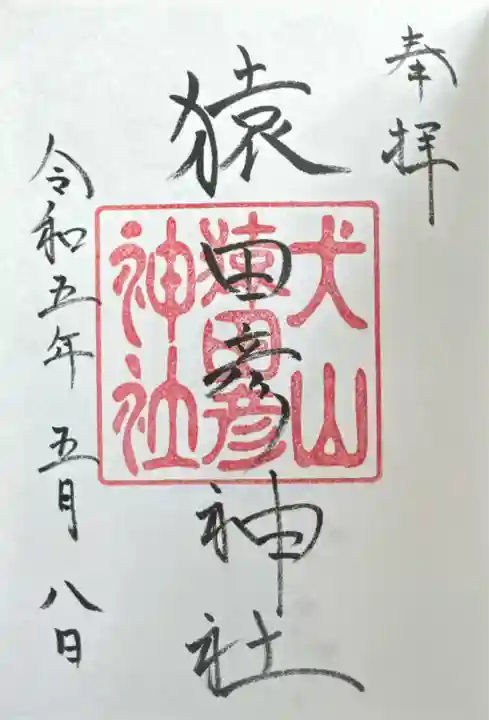 奉拝
猿田彦神社
犬山
猿田彦
神社
令和五年五月八日